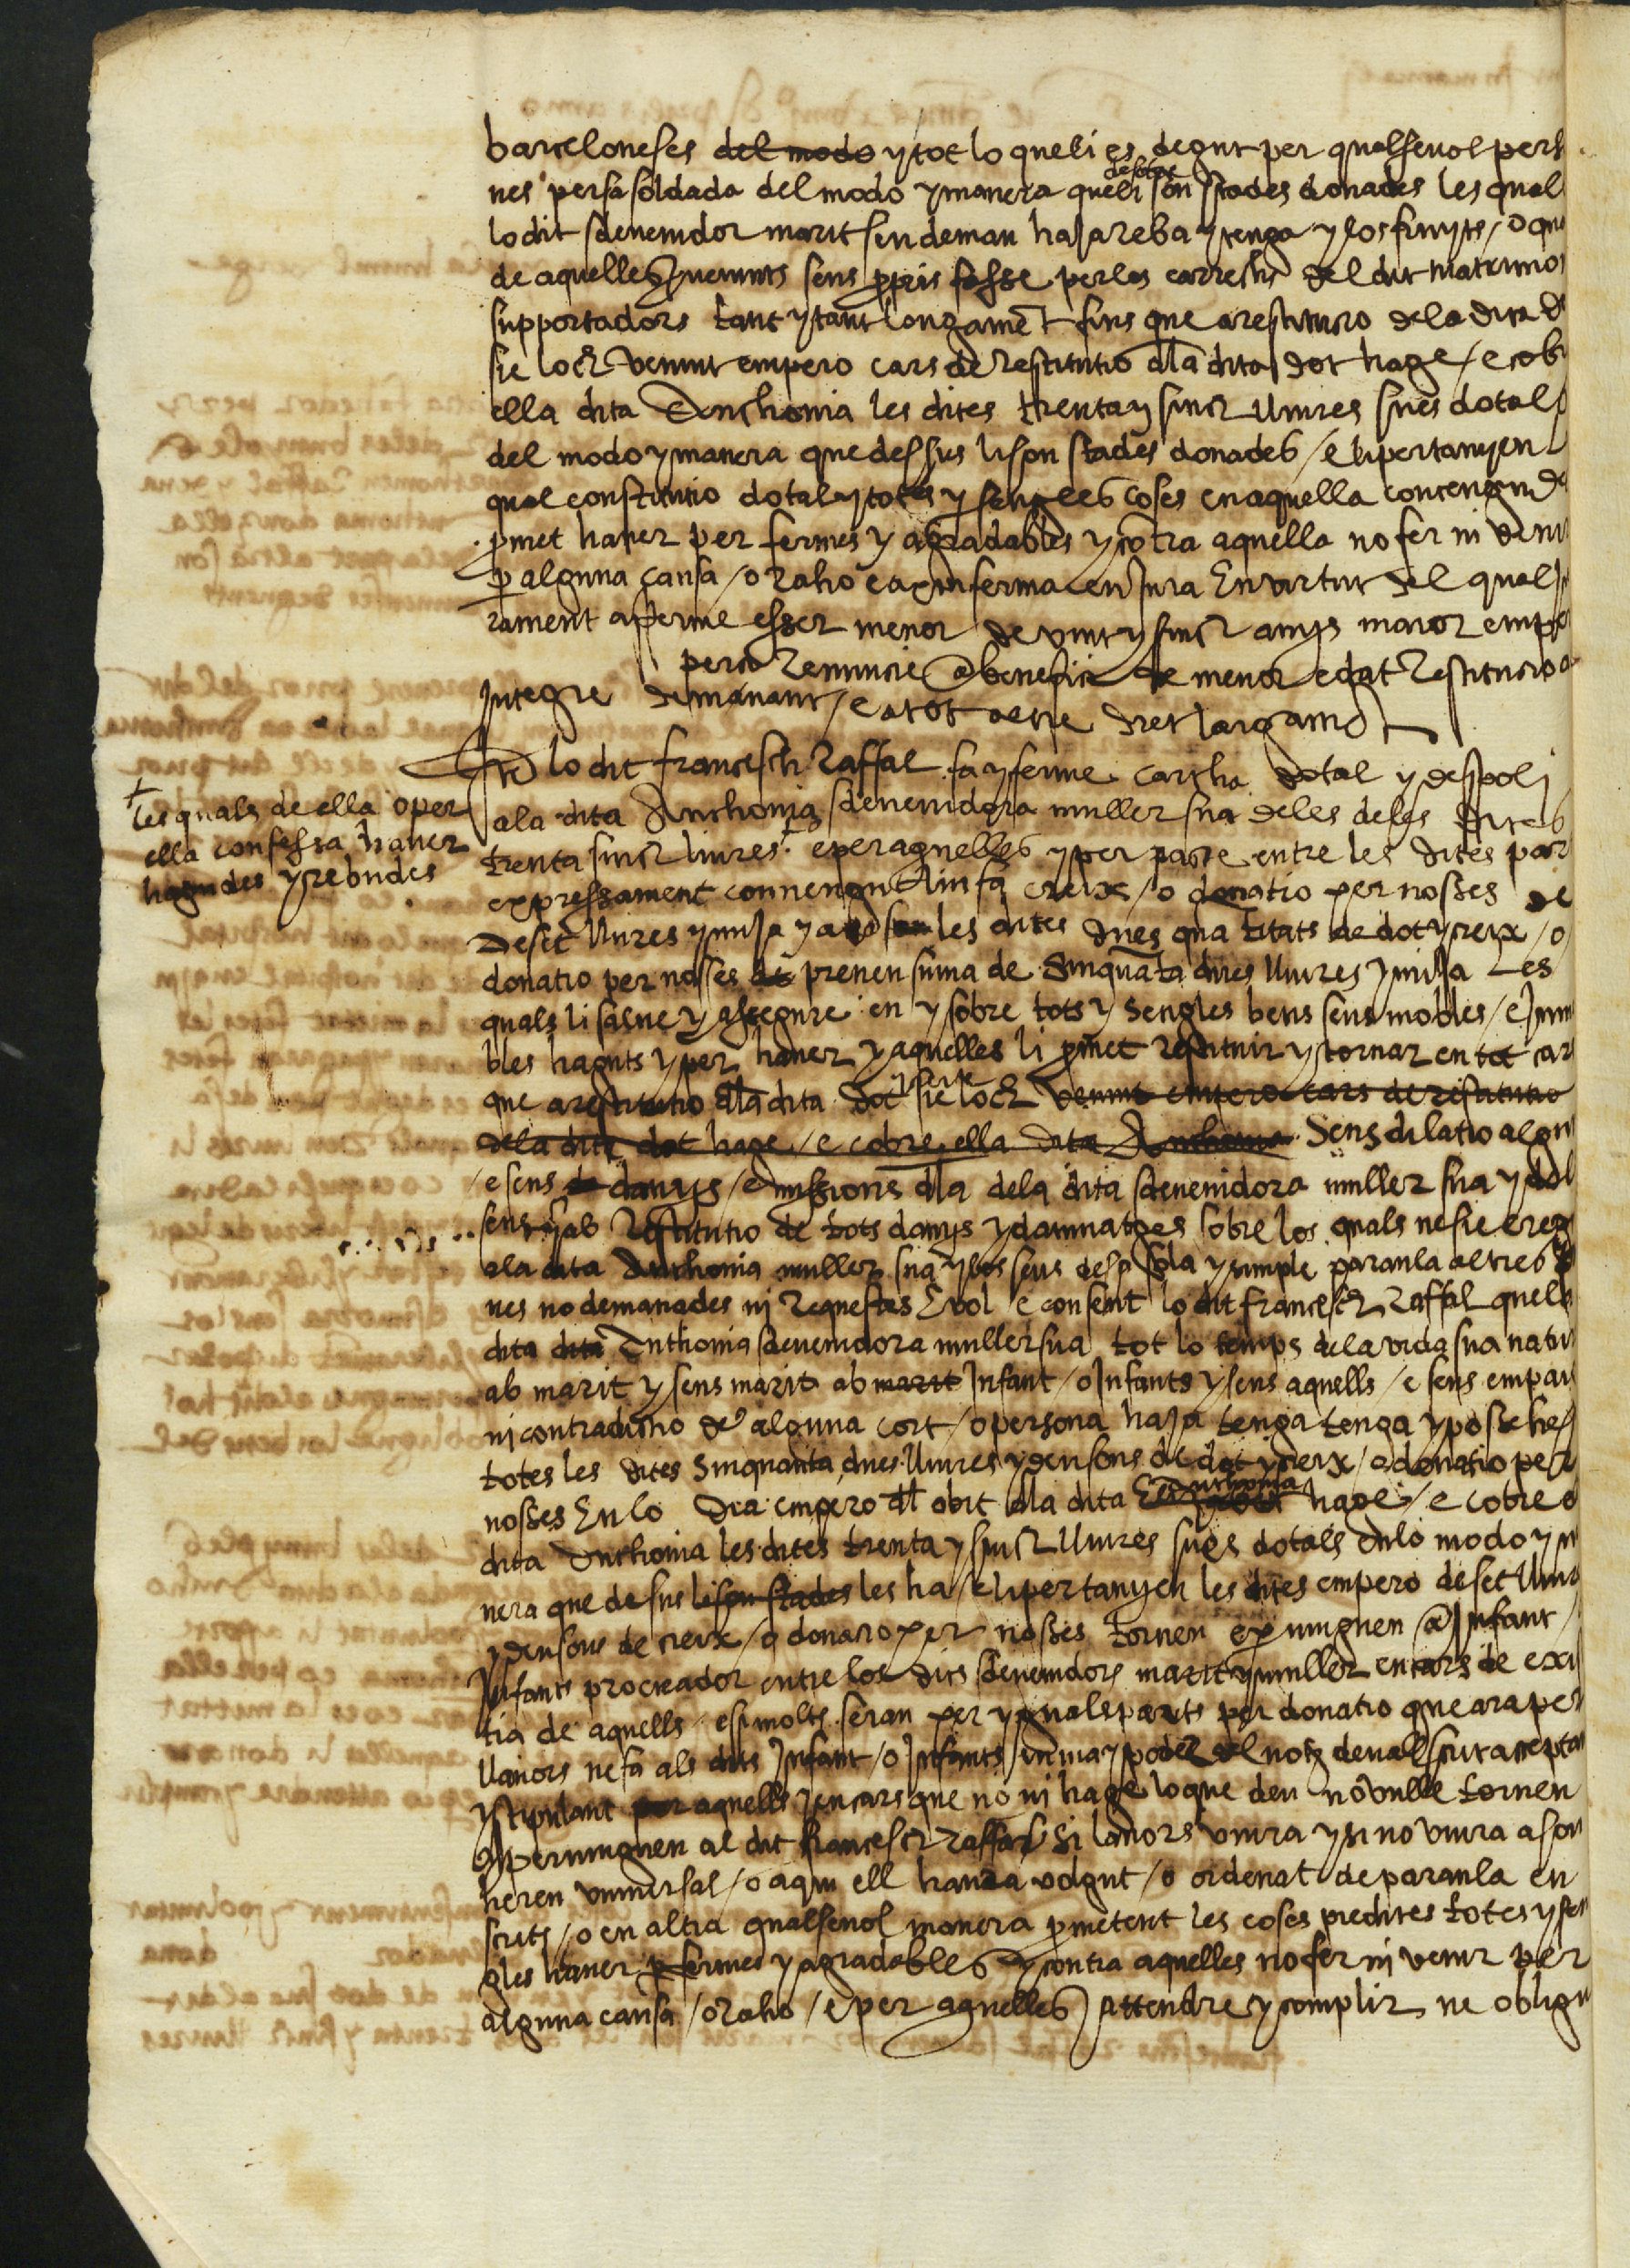 barceloneses del modo y tot lo que li es degut per qualsevol perso
nes per sa soldada del modo y manera que li dessus son stades donades les qual
lo dit sdevenidor marit seu deman haja reba y tenga y los fruyts / o que
de aquelles vennts sens propis fasse per los carrechs del dit matrimo
supportadors tant y tant longament fins que a restitucio de la dita d
sie loch venint empero cars de restitutio dla dita dot hage / e cobr
ella dita Anthonia les dites trenta y sinch lliures sues dotals
del modo y manera que dessus li son stades donades / e li pertanyen l
qual constitutio dotal y totes y sengles coses en aquella contengudes
pmet haver per fermes y agradables y cotra aquella no fer ni venir
p alguna causa / o raho e axi u ferma e en jura En virtut del qual ju
rament aferme esser menor de vint y sinch anys maior empero
perço renuncie a benefici de menor edat restitucio
integre demanant / e a tot altre dret largamet
Itē lo dit francesch Raffal fa y ferme cartha dotal y despoli
a la dita Anthonia sdevenidora muller sua de les deles dites
trenta sinch liures + e per aquelles y per pacte entre les dites par
expressament convengut li n fa creix / o donatio per nosses de
deset lliures y mija y axi son les dites dues quātitats de dot y creix / o
donatio per nosses de prenen suma de sinquāta dues lliures y mija Les
quals li salve y assegure en y sobre tots y sengles bens seus mobles / e immo
bles haguts y per haver y aquelles li pmet restituir y tornar en tot cars
que a restitutio dla dita dot y creix sie loch venint empero cars de restitutio
de la dita dot hage / e cobre ella dita Anthonia Sens dilatio algun
e sens de danys / e missions dla dela dita sdevenidora muller sua y dels
seus y ab restitutio de tots danys y damnatges sobre los quals ne sie creg
a la dita Anthonia muller sua y los seus de sa sola y simple paraula altres
nes no demanades ni requestes E vol e consent lo dit francesch Raffal que la
dita dita Anthonia sdevenidora muller sua tot lo temps de la vida sua natur
ab marit y sens marit ab marit infant / o infants y sens aquells / e sens empaig
ni contradictio de alguna cort / o persona haja tenga tenga y possehes
totes les dites sinquanta dues lliures y deu sous de dot y creix / o donatio per
nosses En lo dia empero dl obit dla dita Anthonia hage / e cobre
dita Anthonia les dites trenta y sinch lliures sues dotals en lo modo y m
nera que desus li son stades les ha / e li pertanyen les dites empero deset lliur
y deu sous de creix / o donatio per nosses tornen e pvinguen a infant
Infants procreador entre los dits sdevenidors marit y muller en cars de exis
tia de aquells e si molts seran per yguals parts per donatio que ara per
llavors ne fa als dits infant / o infants en ma y poder del noṫ devall scrit acceptan
y stipulant per aquells y en cars que no ni hage lo que deu no vulle tornen
y pervinguen al dit francesch Raffal si lavors viura y si no viura a son
hereu universal / o a qui ell haura volgut / o ordenat de paraula en
scrits / o en altra qualsevol manera pmetent les coses predites totes y sen
gles haver p fermes y agradables y contra aquelles no fer ni venir per
alguna causa / o raho / e per aquelles attendre y complir ne obligu
+
les quals de ella o per
ella confessa haver
hagudes y rebudes